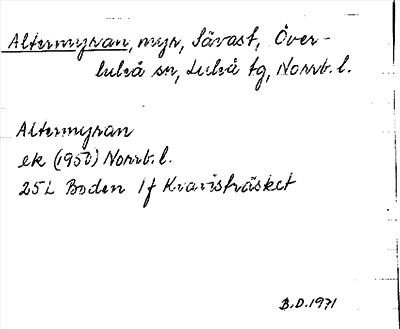 Altermyran, myr, Sävast, Över-
luleå sn, Luleå tg, Norrb. l.
Altermyran
ek (1950) Norrb. l.
25L Boden 1f Kvaristräsket
B.D. 1971